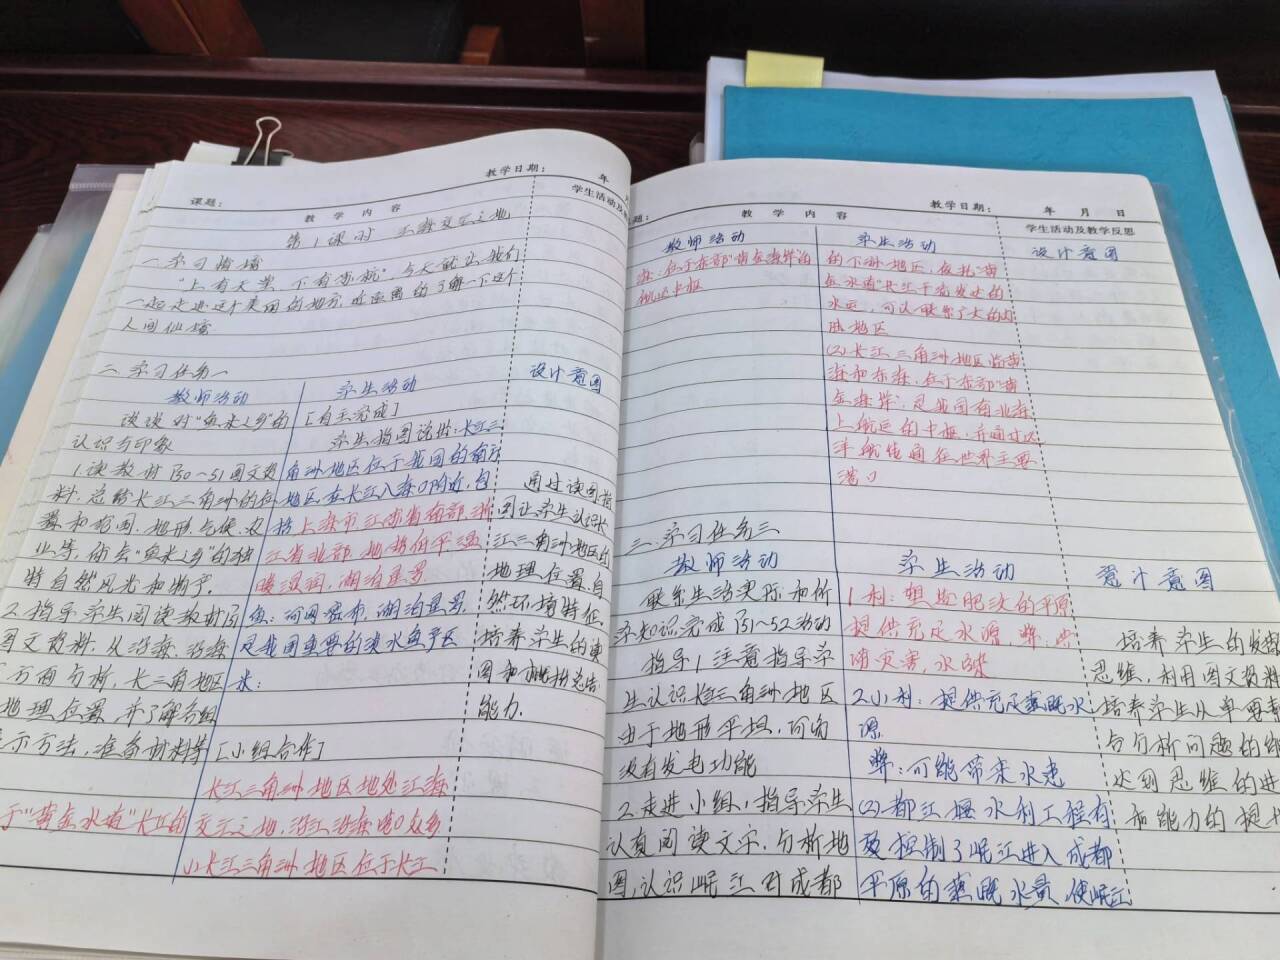 课题:
教学日期: 年
教 学 内 容
学生活动及
第1课时 江海交汇之地
一.学习情境
"上有天堂,下有苏杭",今天就让我们
一起走进这个美丽的地方,近距离的了解一下这个
人间仙境
二.学习任务一
教师活动
学生活动
设计意图
谈谈对"鱼米之乡"的
认识与印象
1.读教材P50~51图文资
料,总结长江三角洲的位
置和范围、地形、气候、农
业等,体会"鱼米之乡"的独
特自然风光和物产.
2.指导学生阅读教材
图文资料,从沿海、沿
方面分析,长三角地区
地理位置,并了解各组
示方法,准备材料等
于"黄金水道"长江的
[自主完成]
学生指图说出:长江三
角洲地区位于我国的南方
地区,在长江入海口附近,包
括上海市、江苏省南部、浙
江省北部,地势低平,温
暖湿润,湖泊星罗.
鱼:河网密布,湖泊星罗,
是我国重要的淡水鱼产区
米:
[小组合作]
长江三角洲地区地处江海
交汇之地,沿江沿海港口众多
(1)长江三角洲地区位于长江
通过读图指
图让学生认识长
江三角洲地区的
地理位置、自
然环境特征,
培养学生的读
图和概括总结
能力.
题:
教 学 内 容
教学日期: 年 月 日
学生活动及教学反思
教师活动
学生活动
设计意图
海:位于东部"黄金海岸"的
航运中枢
的下游地区,依托"黄
金水道"长江干流发达的
水运,可以联系广大的内
陆地区
(2)长江三角洲地区临黄
海和东海,位于东部"黄
金海岸",是我国南北海
上航运的中枢,并通过远
洋航线通往世界主要
港口
三.学习任务三
教师活动
学生活动
意计意图
联系生活实际和所
学知识完成P51~52活动
指导1.注意指导学
生认识长江三角洲地区
由于地形平坦,河流
没有发电功能
2.走进小组,指导学生
认真阅读文字,分析地
图,认识岷江对成都
1.利:塑造肥沃的平原
提供充足水源,弊:洪
涝灾害,水
2.(1)利:提供充足灌溉水
源
弊:可能带来水患
(2)都江堰水利工程有
效控制了岷江进入成都
平原的灌溉水量,使岷江
培养学生的发散
思维,利用图文资料
培养学生从单要素
与分析问题的能
达到思维的进
和能力的提升